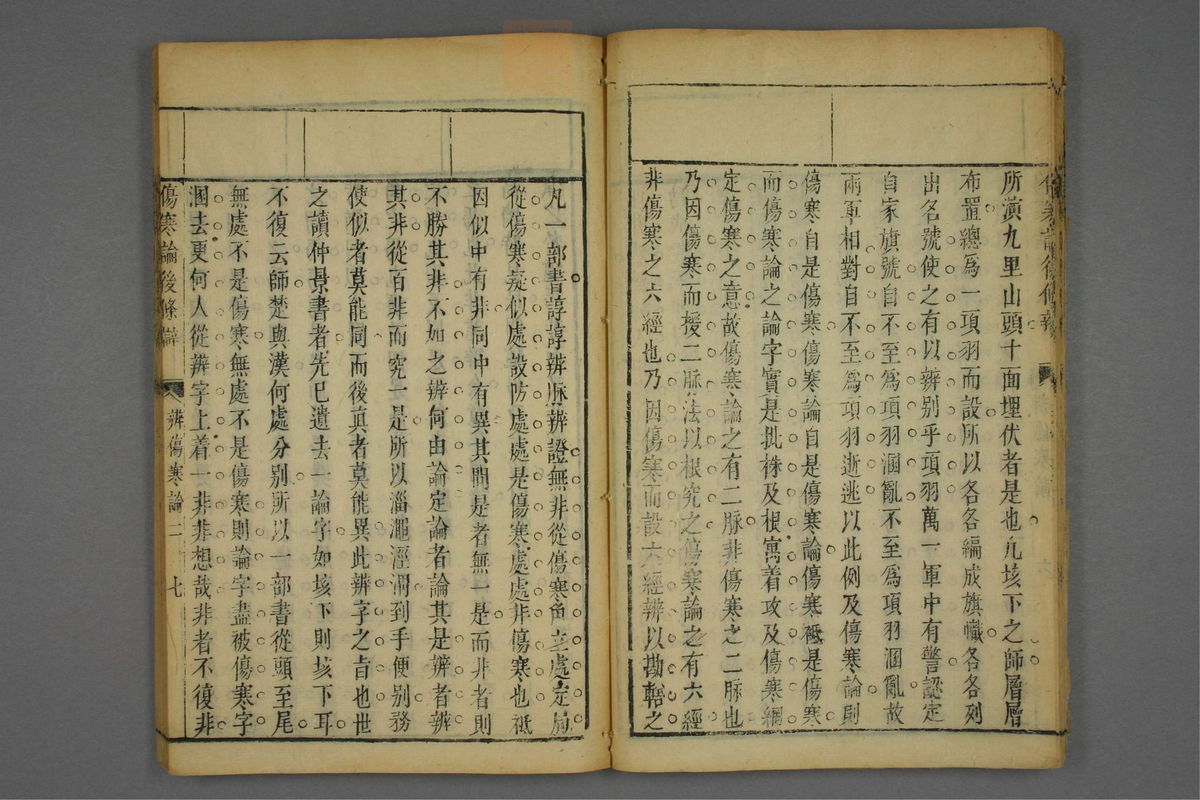 所演九里山頭十面埋伏者是也凡垓下之師層層
布置總爲一項羽而設所以各各編成旗幟各各列
出名號使之有以辨别乎項羽萬一軍中有警認定
自家旗號自不至爲項羽溷亂不至爲項羽溷亂故
兩軍相對自不至爲項羽逝逃以此例及傷寒論則
傷寒自是傷寒傷寒論自是傷寒論傷寒祗是傷寒
而傷寒論之論字實是批株及根寓着攻及傷寒綱
定傷寒之意故傷寒論之有二脉非傷寒之二脉也
乃因傷寒而援二脉法以根究之傷寒論之有六經
非傷寒之六經也乃因傷寒而設六經辨以勘轄之
凡一部書諄諄辨脉辨證無非從傷寒角立處定局
從傷寒疑似處設防處處是傷寒處處非傷寒也祗
因似中有非同中有異其間是者無一是而非者則
不勝其非不如之辨何由論定論者論其是辨者辨
其非從百非而究一是所以淄澠涇渭到手便别務
使似者莫能同而後真者莫能異此辨字之旨也世
之讀仲景書者先已遺去一論字如垓下則垓下耳
不復云師楚與漢何處分别所以一部書從頭至尾
無處不是傷寒無處不是傷寒則論字盡被傷寒字
溷去更何人從辨字上着一非非想哉非者不復非
傷寒論後條辯
辨傷寒論二
七